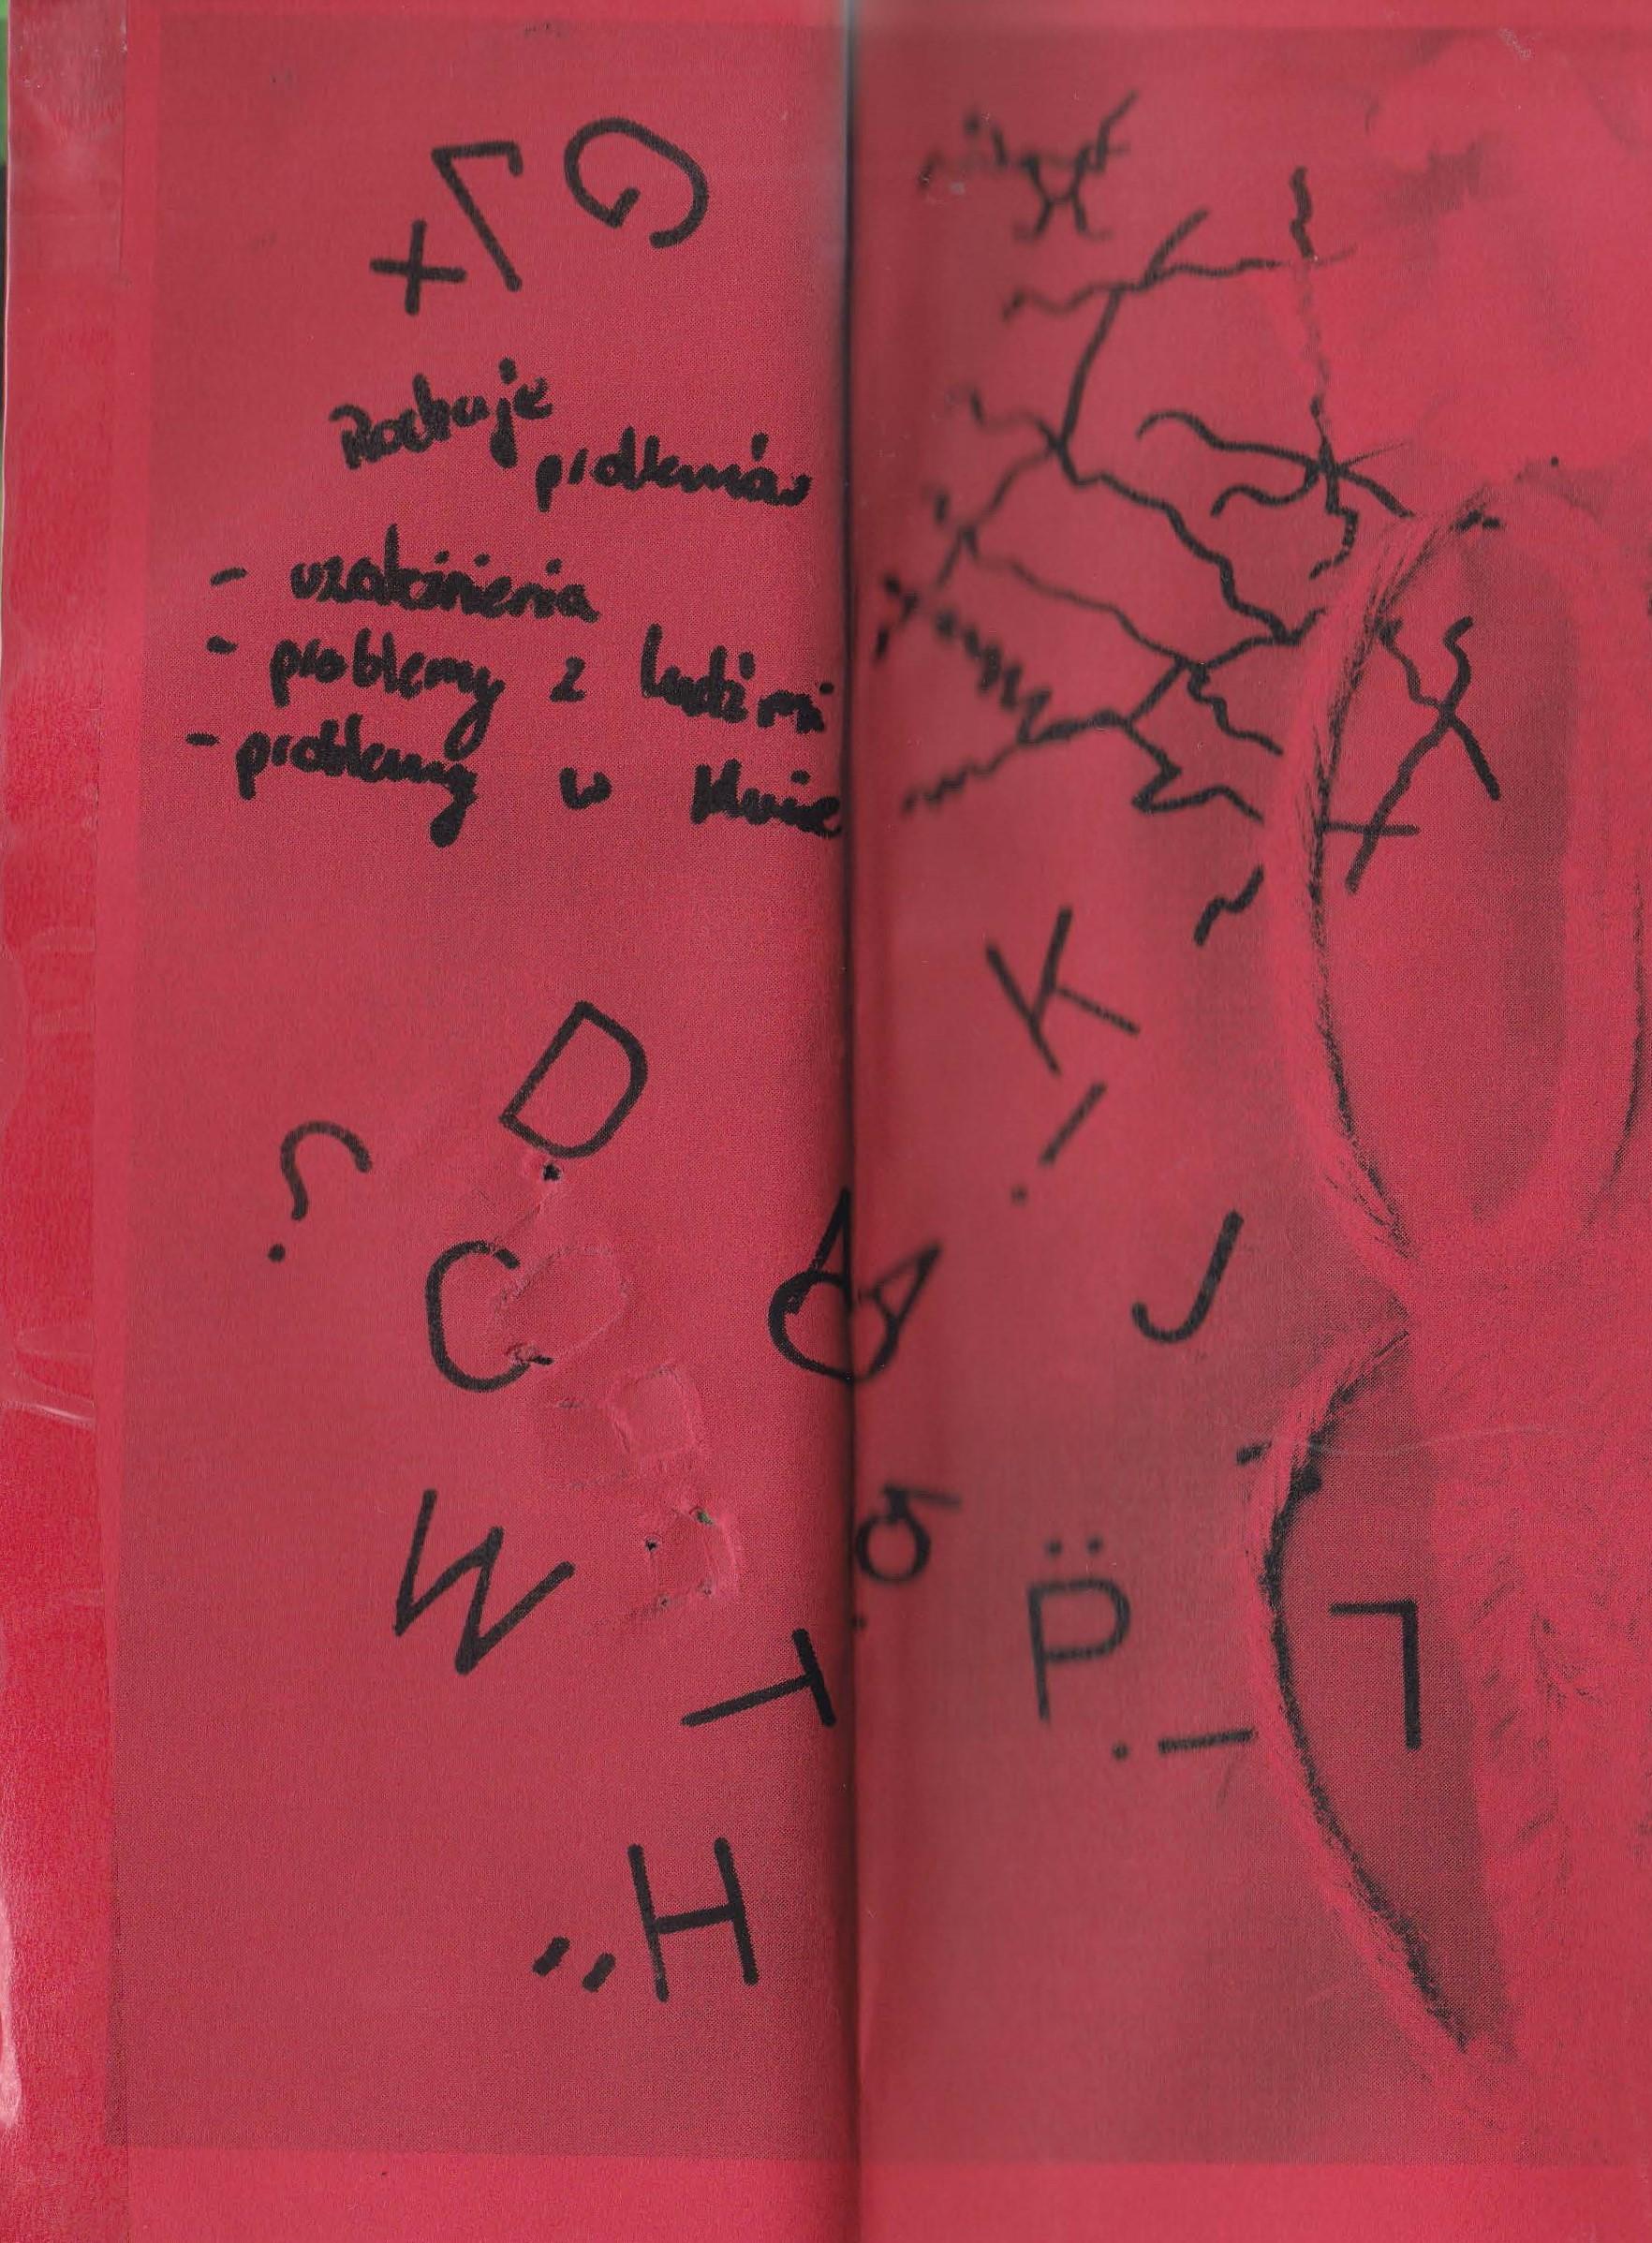 G
7
+
Rodzaje
problemów
- uzależnienia
- problemy z ludźmi
- problemy w
K
D
!
?
C
A
J
W
P
T
L
!
H